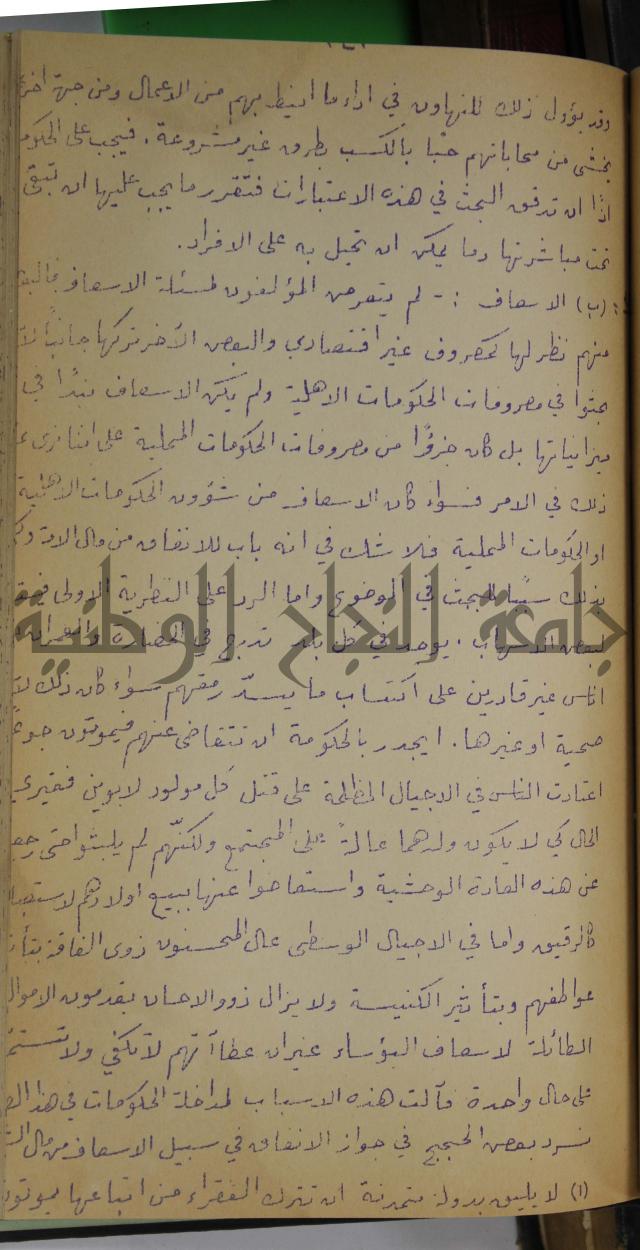 وقد يؤول ذلك للتهاون في اداء ما انيط بهم من الاعمال ومن جهة اخرى
يخشى من محاباتهم حبًا بالكسب بطرق غير مشروعة. فيجب على الحكو
اذًا ان تدقق البحث في هذه الاعتبارات فتقرر ما يجب عليها ان تبقي
تحت مباشرتها وما يمكن ان تحيل به على الافراد.
(ب) الاسعاف :- لم يتعرض المؤلفون لمسئلة الاسعاف فالبعض
منهم نظر لها كمصروف غير اقتصادي والبعض الآخر تركها جانبًا
بحثوا في مصروفات الحكومات الاهلية ولم يكن الاسعاف بندًا في
ميزانياتها بل كان جزؤًا من مصروفات الحكومات المحلية على اننا نرى
ذلك في الامر فسواء كان الاسعاف من شؤون الحكومات الاهلية
او الحكومات المحلية فلا شك في انه باب للانفاق من مال الامة وكفى
بذلك سببًا للبحث في الموضوع واما الرد على النظرية الاولى
لبعض الاسهاب. يوجد في كل بلد تدرج في الحضارة والعمران
اناس غير قادرين على اكتساب ما يسدّ رمقهم سواء كان ذلك
صحية او غيرها. ايجدر بالحكومة ان تتغاضى عنهم فيموتون جوعًا
اعتادت الناس في الاجيال المظلمة على قتل كل مولود لابوين فقيري
الحال كي لا يكون ولدهما عالةً على المجتمع ولكنّهم لم يلبثوا حتى رجعوا
عن هذه العادة الوحشية واستعاضوا عنها ببيع اولادهم
كالرقيق واما في الاجيال الوسطى عال المحسنون ذوى الفاقة
عواطفهم وبتأثير الكنيسة ولا يزال ذوو الاحسان يقدمون الاموال
الطائلة لاسعاف البؤساء غير ان عطاآتهم لا تكفي ولا تستمر
على حال واحدة فآلت هذه الاسباب لمداخلة الحكومات في هذا
نسرد بعض الحجج في جواز الانفاق في سبيل الاسعاف من مال
(١) لا يليق بدولة متمدنة ان تترك الفقراء من اتباعها يموتون
جامعة النجاح الوطنية